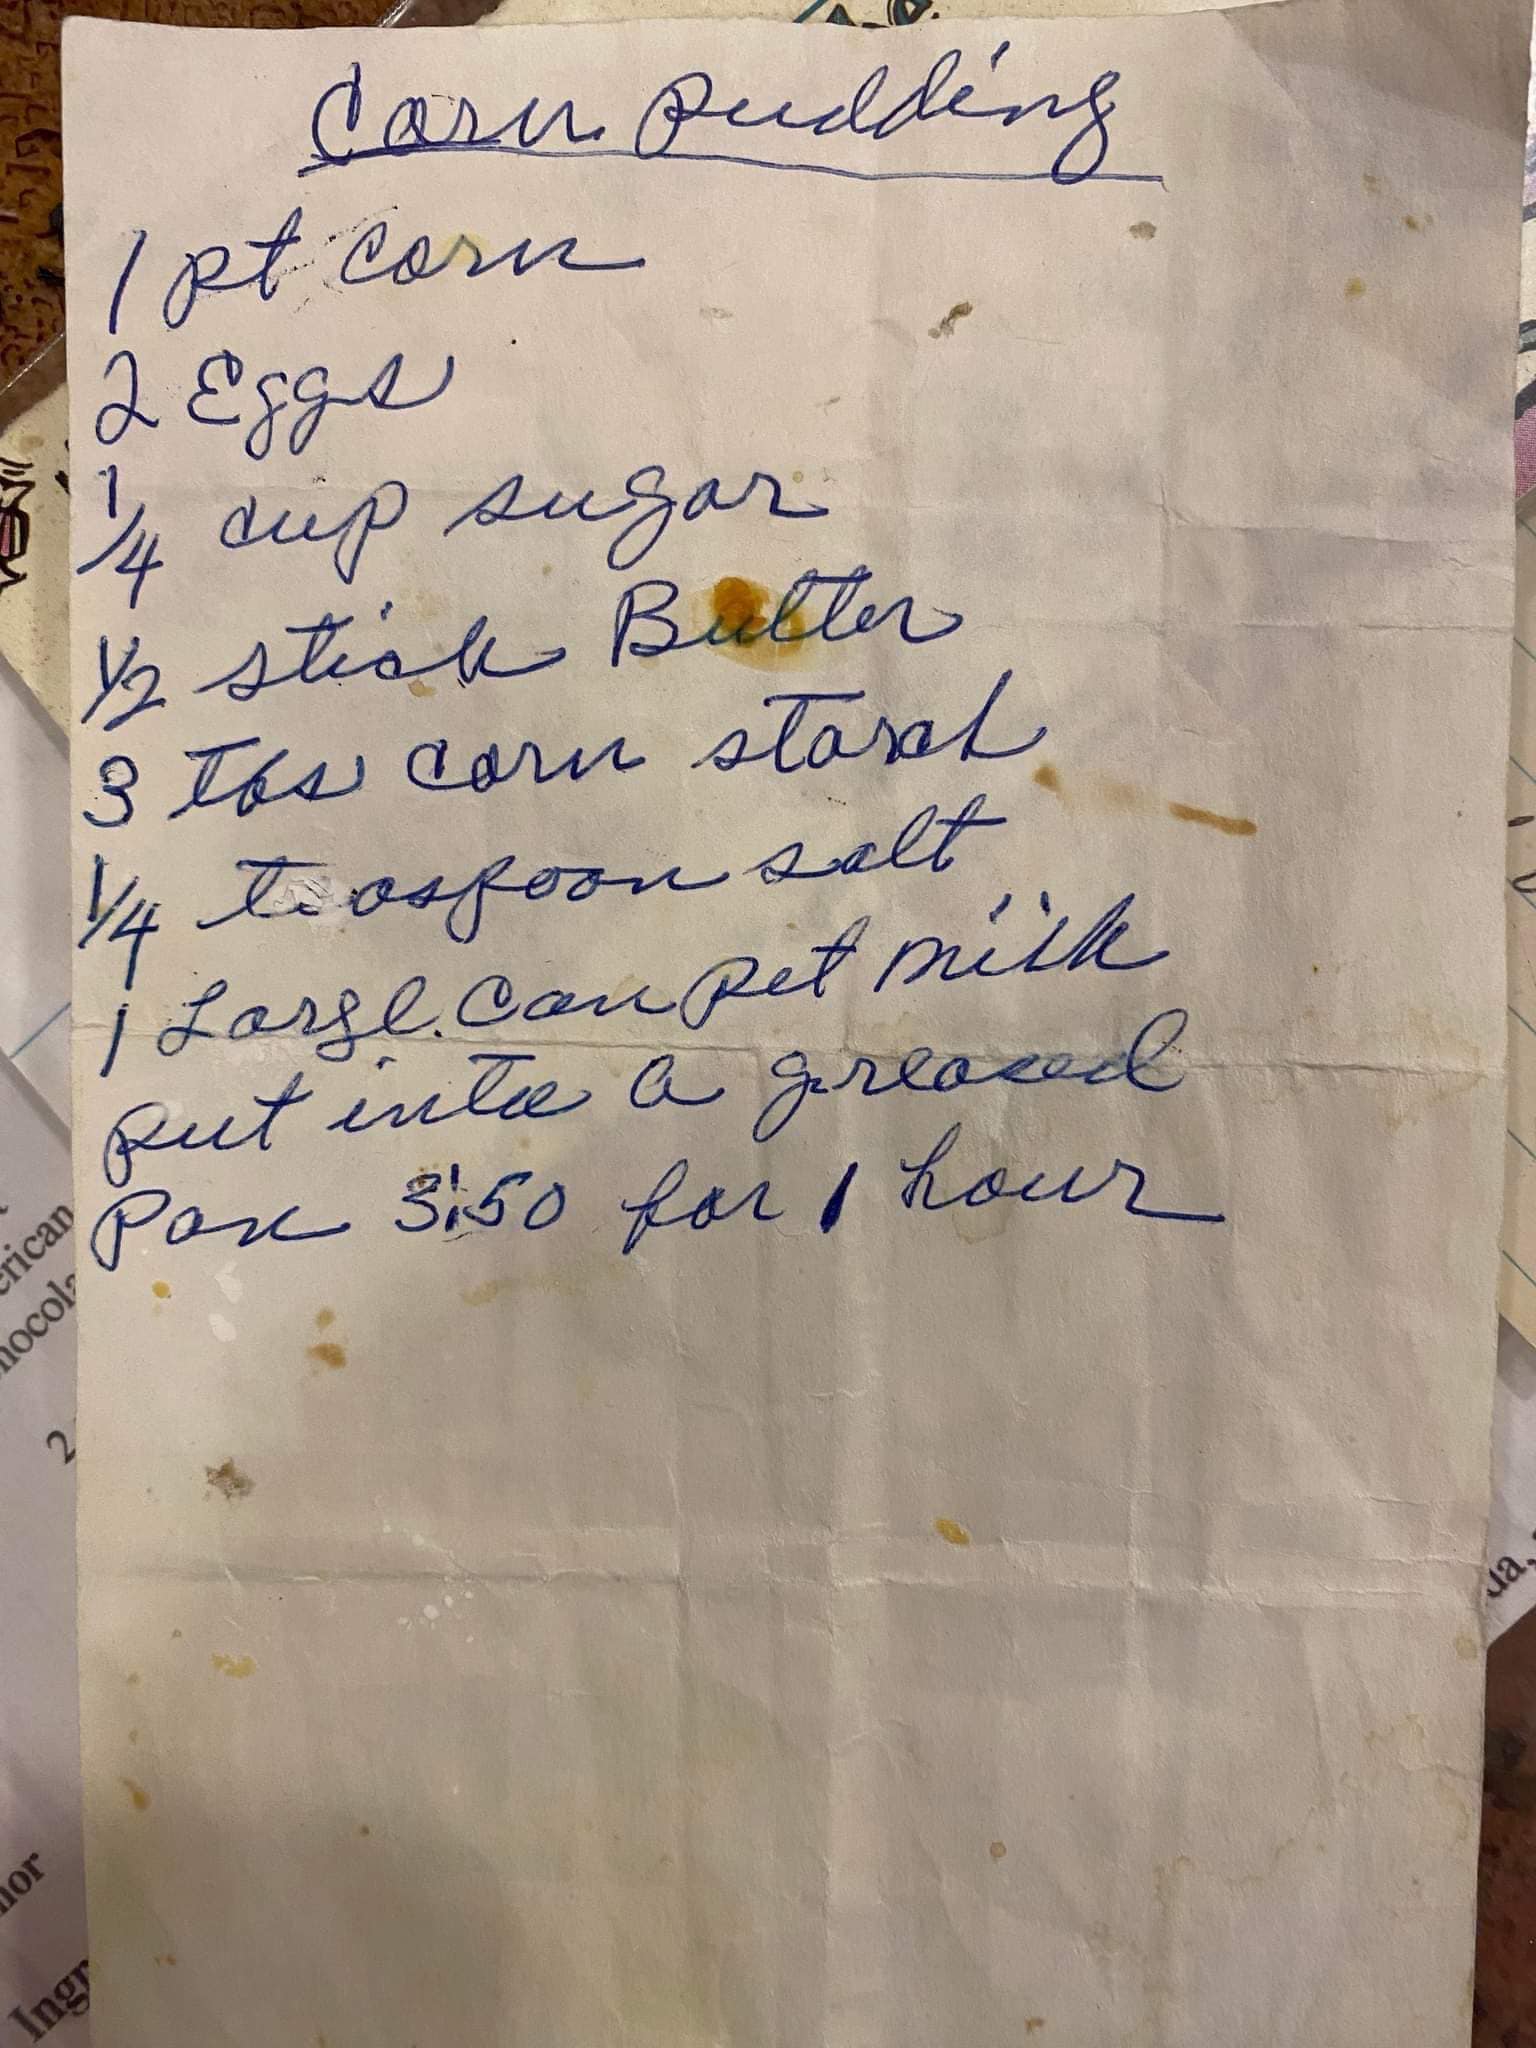 Corn Pudding
1 pt corn
2 Eggs
1/4 cup sugar
1/2 stick Butter
3 tbs corn starch
1/4 teaspoon salt
1 Large can pet milk
put into a greased
Pan 350 for 1 hour
erican
hocola
2
nor
Ingr